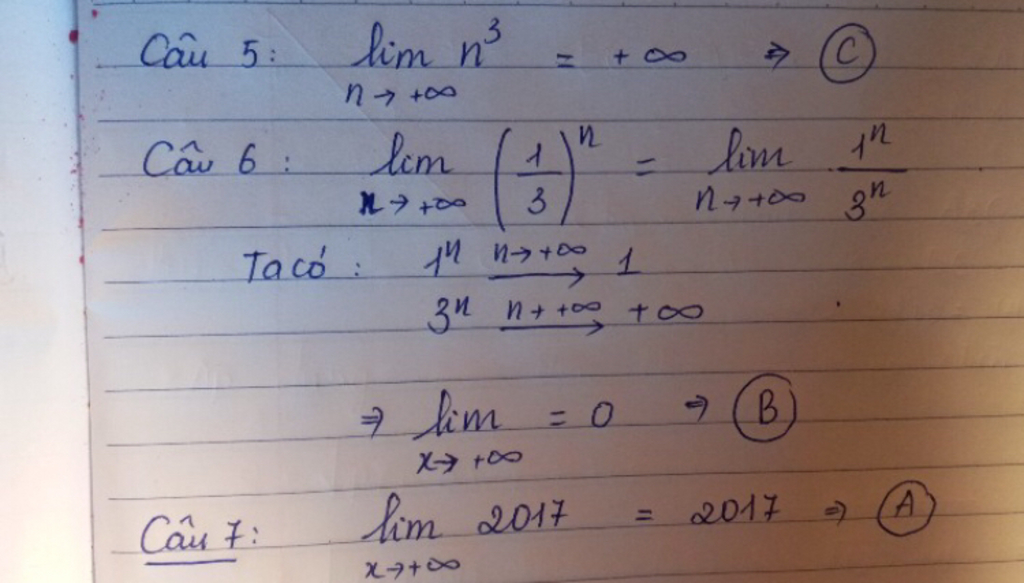 Câu 5: lim n³ = + ∞ ⇒ C
n → +∞
Câu 6 : lim (1/3)ⁿ = lim 1ⁿ/3ⁿ
n → +∞ n → +∞
Ta có : 1ⁿ n → +∞ → 1
3ⁿ n → +∞ → +∞
⇒ lim = 0 ⇒ B
x → +∞
Câu 7: lim 2017 = 2017 ⇒ A
x → +∞